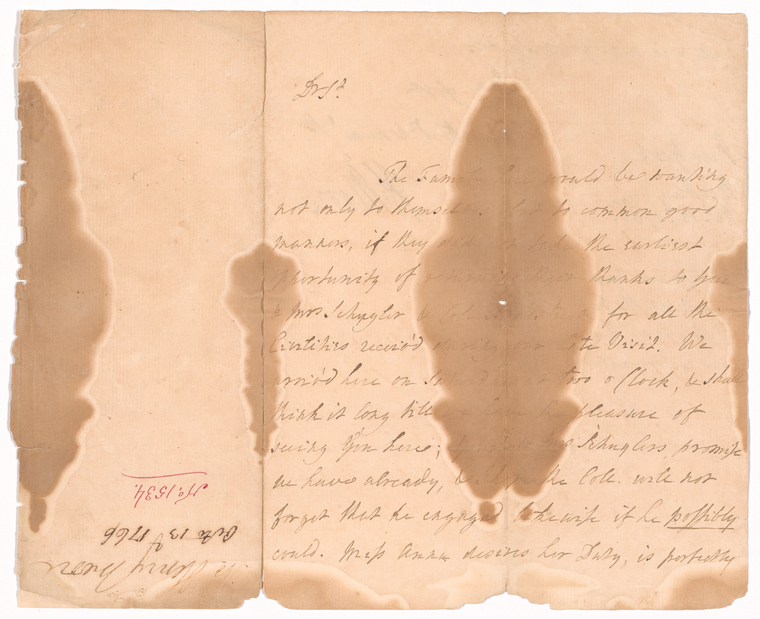 Dr Sr.
The Family here would be wanting
not only to themselves but to common good
manners, if they did not take the earliest
opportunity of returning their thanks to you
& Mrs Schuyler & for all the
Civilities receiv'd during our late Visit. We
arriv'd here on at two o Clock, & shall
think it long till we have the pleasure of
seeing You here; Mrs Schuylers promise
we have already, & I hope the Colo. will not
forget that he engaged likewise if he possibly
could. Miss Anna desires her Duty, is perfectly
No. 1534.
Octo 13th 1766
Henry